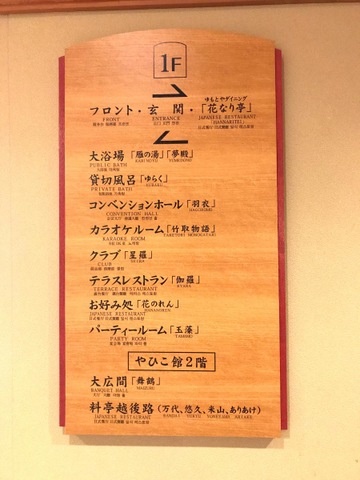 1F
ゆもとやダイニング
フロント・玄関・「花なり亭」
FRONT ENTRANCE JAPANESE RESTAURANT
「HANNARITEI」
大浴場「雁の湯」「夢殿」
PUBLIC BATH KARI NO YU YUMEDONO
貸切風呂「ゆらく」
PRIVATE BATH YURAKU
コンベンションホール「羽衣」
CONVENTION HALL HAGOROMO
カラオケルーム「竹取物語」
KARAOKE ROOM TAKETORI MONOGATARI
クラブ「星羅」
CLUB SEIRA
テラスレストラン「伽羅」
TERRACE RESTAURANT KYARA
お好み処「花のれん」
JAPANESE RESTAURANT HANANOREN
パーティールーム「玉藻」
PARTY ROOM TAMAMO
やひこ館2階
大広間「舞鶴」
BANQUET HALL MAIZURU
料亭越後路(万代、悠久、米山、ありあけ)
JAPANESE RESTAURANT BANDAI YUKYU YONEYAMA ARIAKE